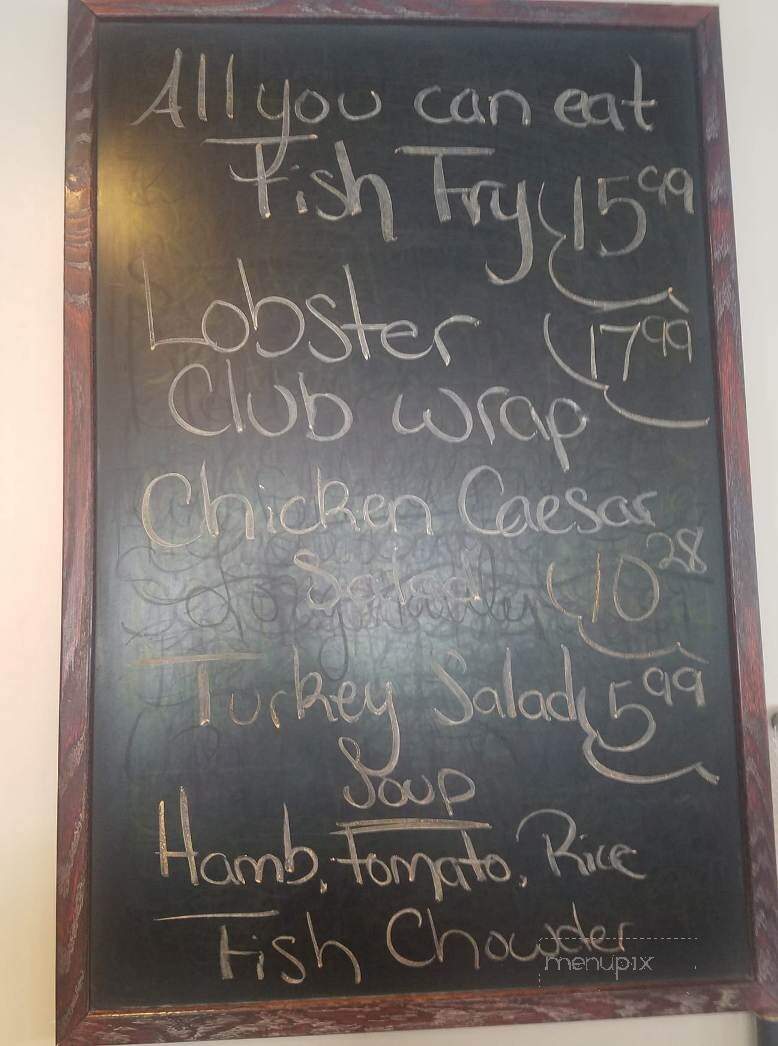 All you can eat
Fish Fry 15.99
Lobster 17.99
Club wrap
Chicken Caesar
Salad 10.28
Turkey Salad 5.99
Soup
Hamb, Tomato, Rice
Fish Chowder
menupix